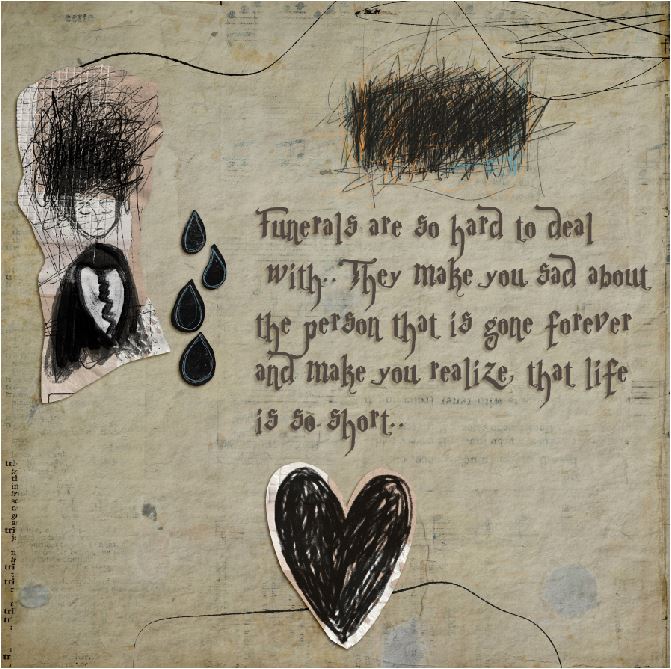 Funerals are so hard to deal
with.. They make you sad about
the person that is gone forever
and make you realize, that life
is so short..